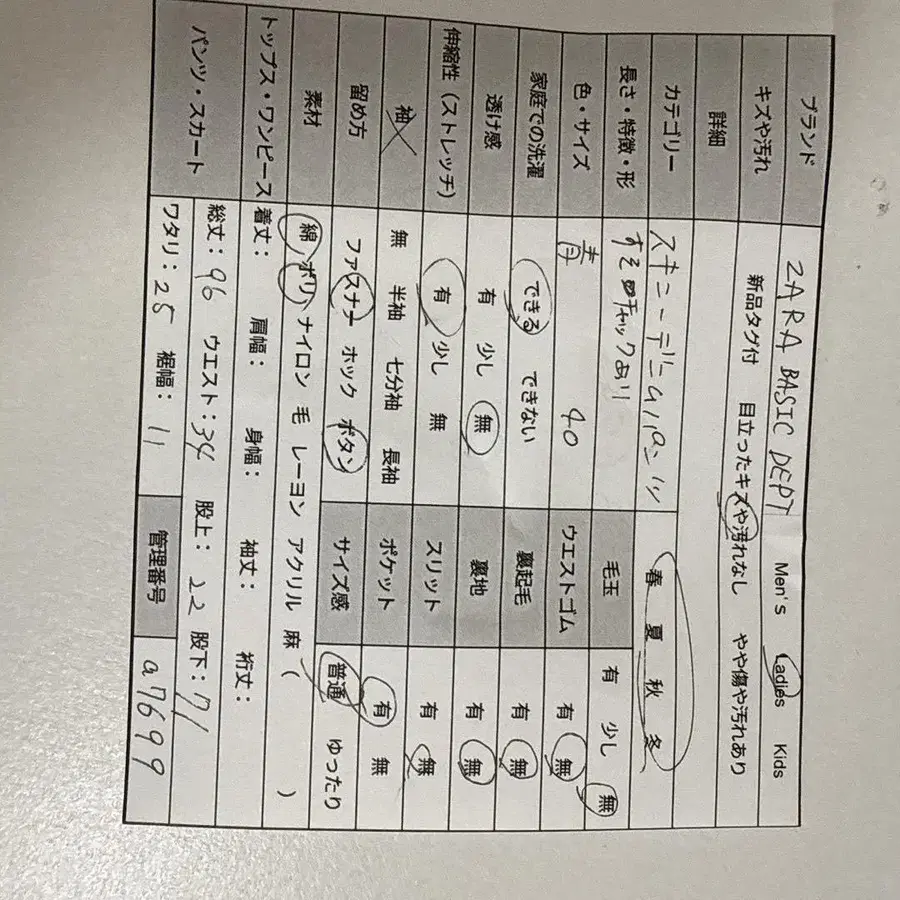 ブランド ZARA BASIC DEPT Men's Ladies Kids
キズや汚れ 新品タグ付 目立ったキズや汚れなし やや傷や汚れあり
詳細
カテゴリー スキニーデニムパンツ 春 夏 秋 冬
長さ・特徴・形 すそ チャックあり 毛玉 有 少し 無
色・サイズ 青 40 ウエストゴム 有 無
家庭での洗濯 できる できない 裏起毛 有 無
透け感 有 少し 無 裏地 有 無
伸縮性（ストレッチ） 有 少し 無 スリット 有 無
袖 無 半袖 七分袖 長袖 ポケット 有 無
留め方 ファスナー ホック ボタン サイズ感 普通 ゆったり
素材 綿 ポリ ナイロン 毛 レーヨン アクリル 麻 （ ）
トップス・ワンピース 着丈： 肩幅： 身幅： 袖丈： 裄丈：
パンツ・スカート 総丈：96 ウエスト：34 股上：22 股下：71
ワタリ：25 裾幅：11 管理番号 a7699